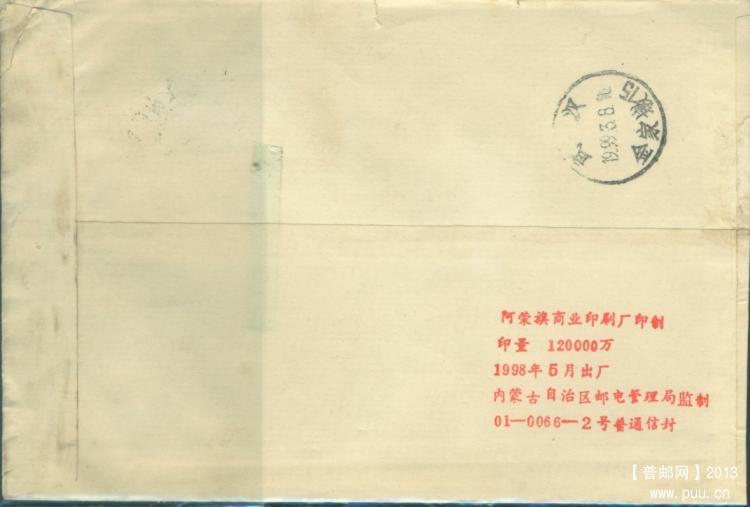 1999.3.8.
15
阿荣旗商业印刷厂印制
印量 120000万
1998年5月出厂
内蒙古自治区邮电管理局监制
01—0066—2号普通信封
【普邮网】2013
www.puu.cn